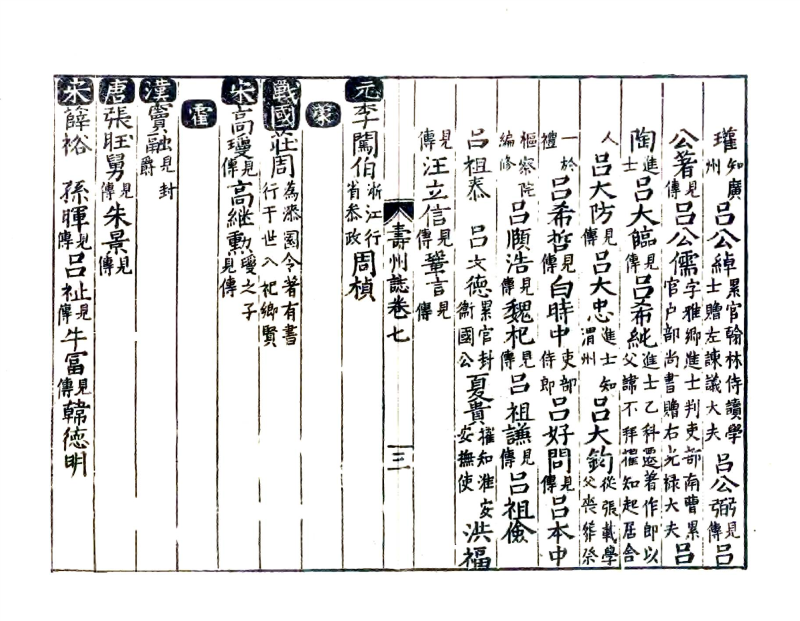 瓘知廣州 呂公綽累官翰林侍讀學士贈左諫議大夫 呂公弼見傳 呂
公著見傳 呂公儒字雅卿進士判吏部南曹累官户部尚書贈右光禄大夫 呂
陶進士 呂大臨見傳 呂希純進士乙科遷著作即以父諱不拜擢知起居舍
人 呂大防見傳 呂大忠進士知渭州 呂大鈞從張載學父喪葬祭
一於禮 呂希哲見傳 白時中吏部侍郎 呂好問見傳 呂本中
樞察院編修 呂頤浩見傳 魏杞見傳 呂祖謙見傳 呂祖儉
呂祖泰 呂文德累官封衛國公 夏貴擢知淮安安撫使 洪福
見傳 汪立信見傳 鞏言見傳
壽州誌卷七 三
元 李闖伯浙江行省叅政 周楨
蒙
戰國 莊周為漆園令著有書行于世入祀鄉賢
宋 高瓊見傳 高繼勳瓊之子見傳
霍
漢 竇融見封爵
唐 張旺舅見傳 朱景見傳
宋 薛裕 孫暉見傳 呂祉見傳 牛冨見傳 韓德明